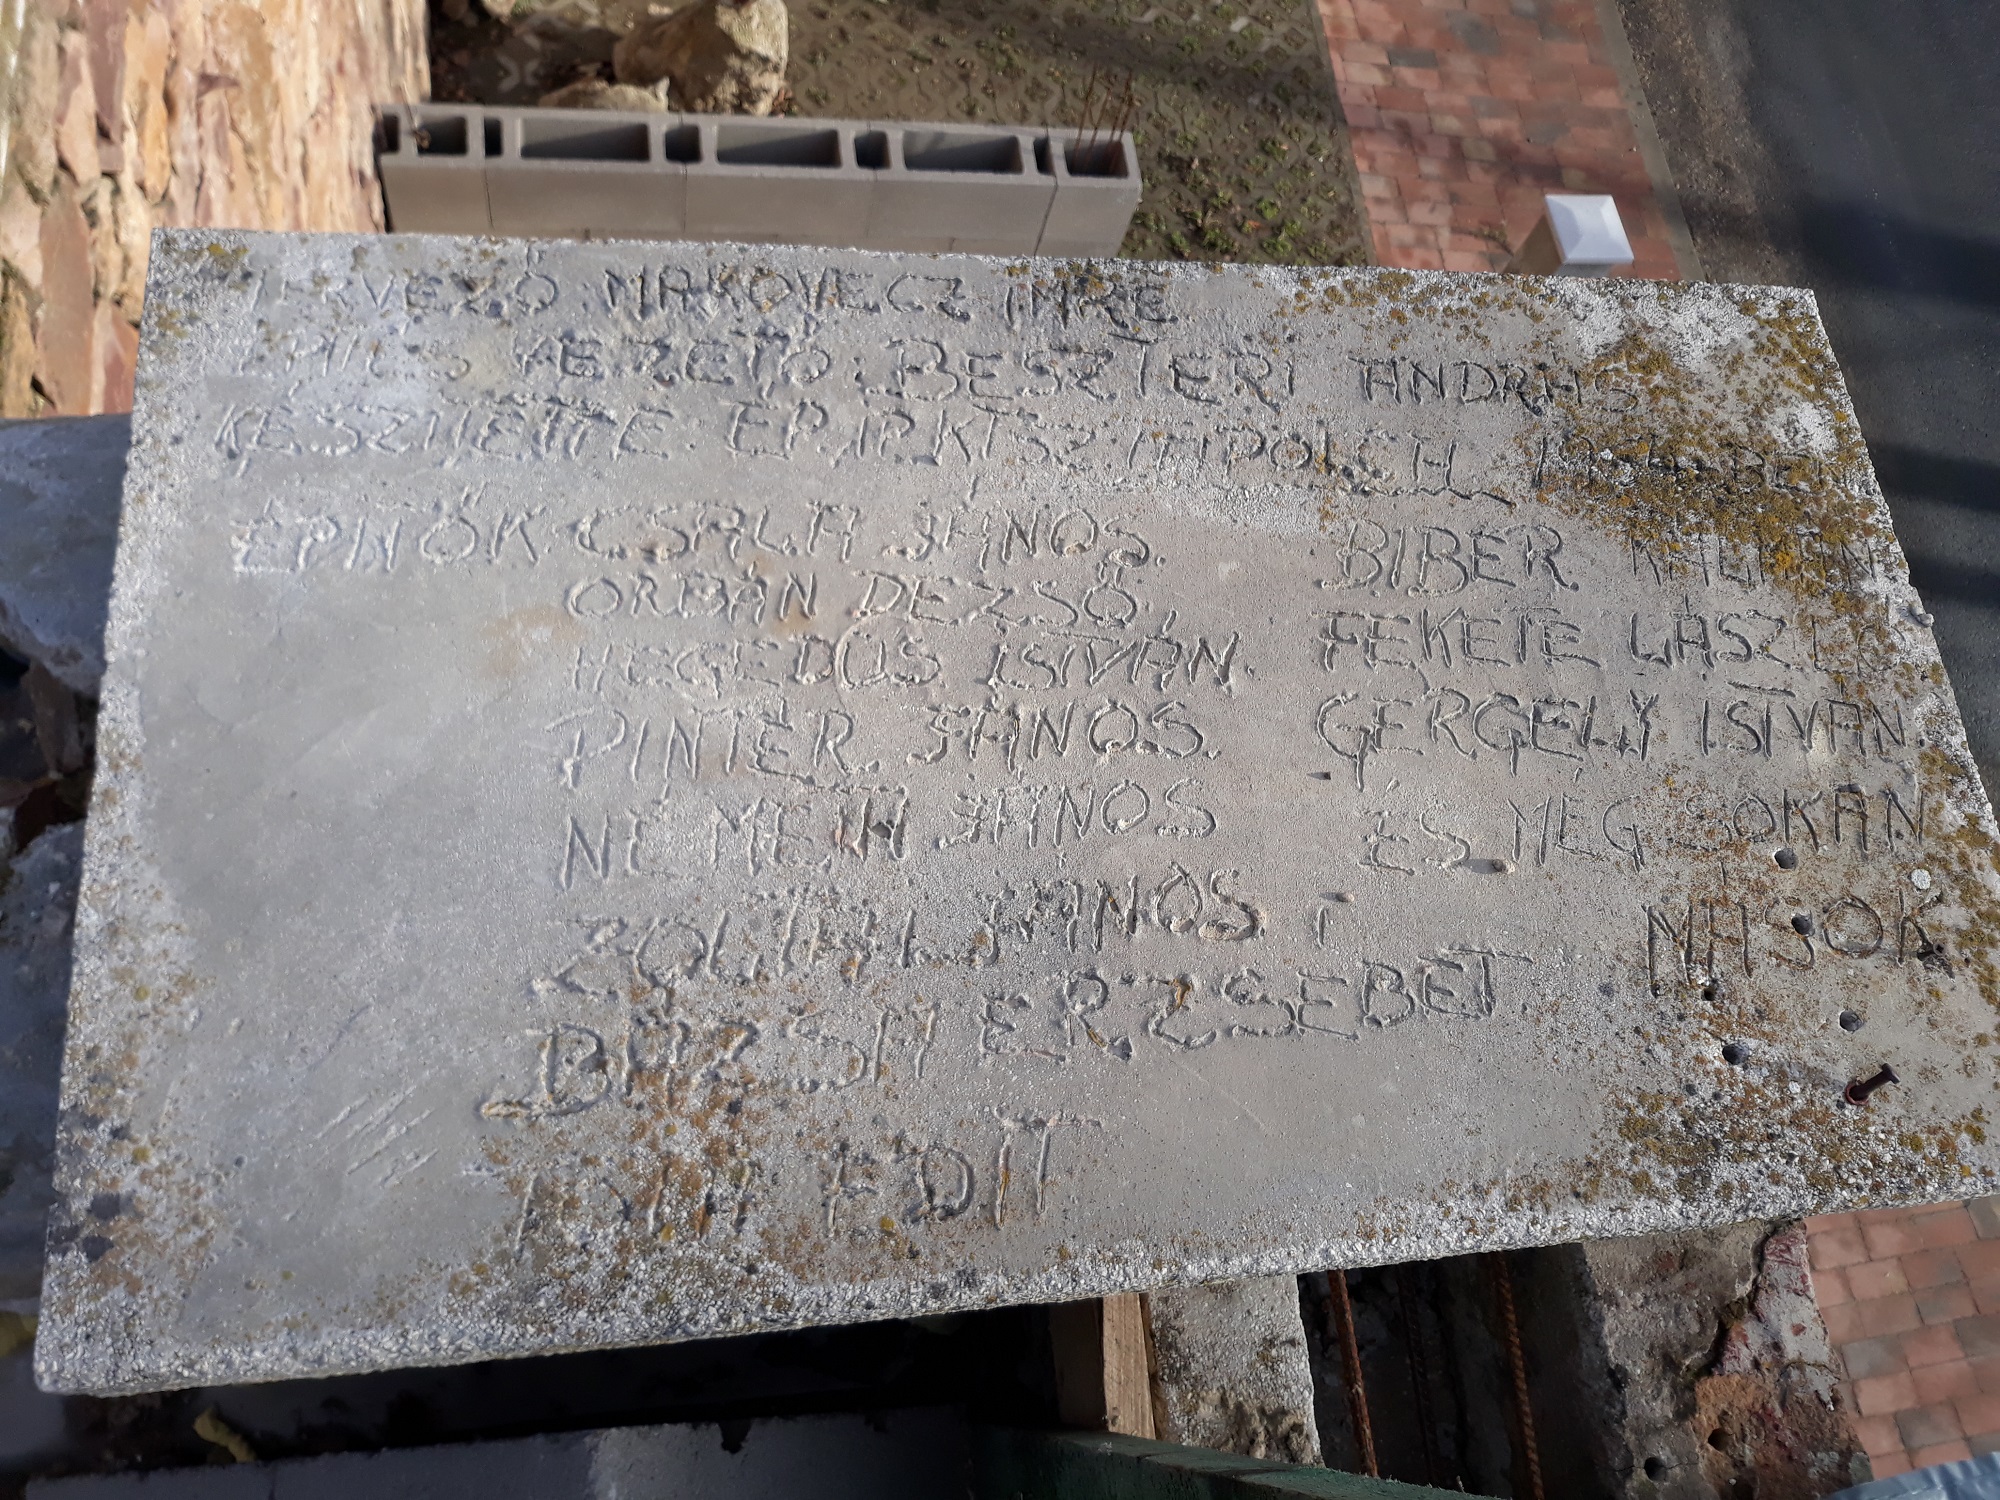 TERVEZŐ: MAKOVECZ IMRE
ÉPÍTÉS VEZETŐ: BESZTERI ANDRÁS
KÉSZÍTETTE: ÉP.IP.KTSZ TAPOLCA
ÉPÍTŐK: CSALA JÁNOS. BIBER KÁLMÁN
ORBÁN DEZSŐ, FEKETE LÁSZLÓ
HEGEDŰS ISTVÁN. GERGELY ISTVÁN.
PINTÉR JÁNOS. ÉS MÉG SOKAN
NÉMETH JÁNOS MÁSOK
JÁNOS
BAZSA ERZSÉBET.
EDIT